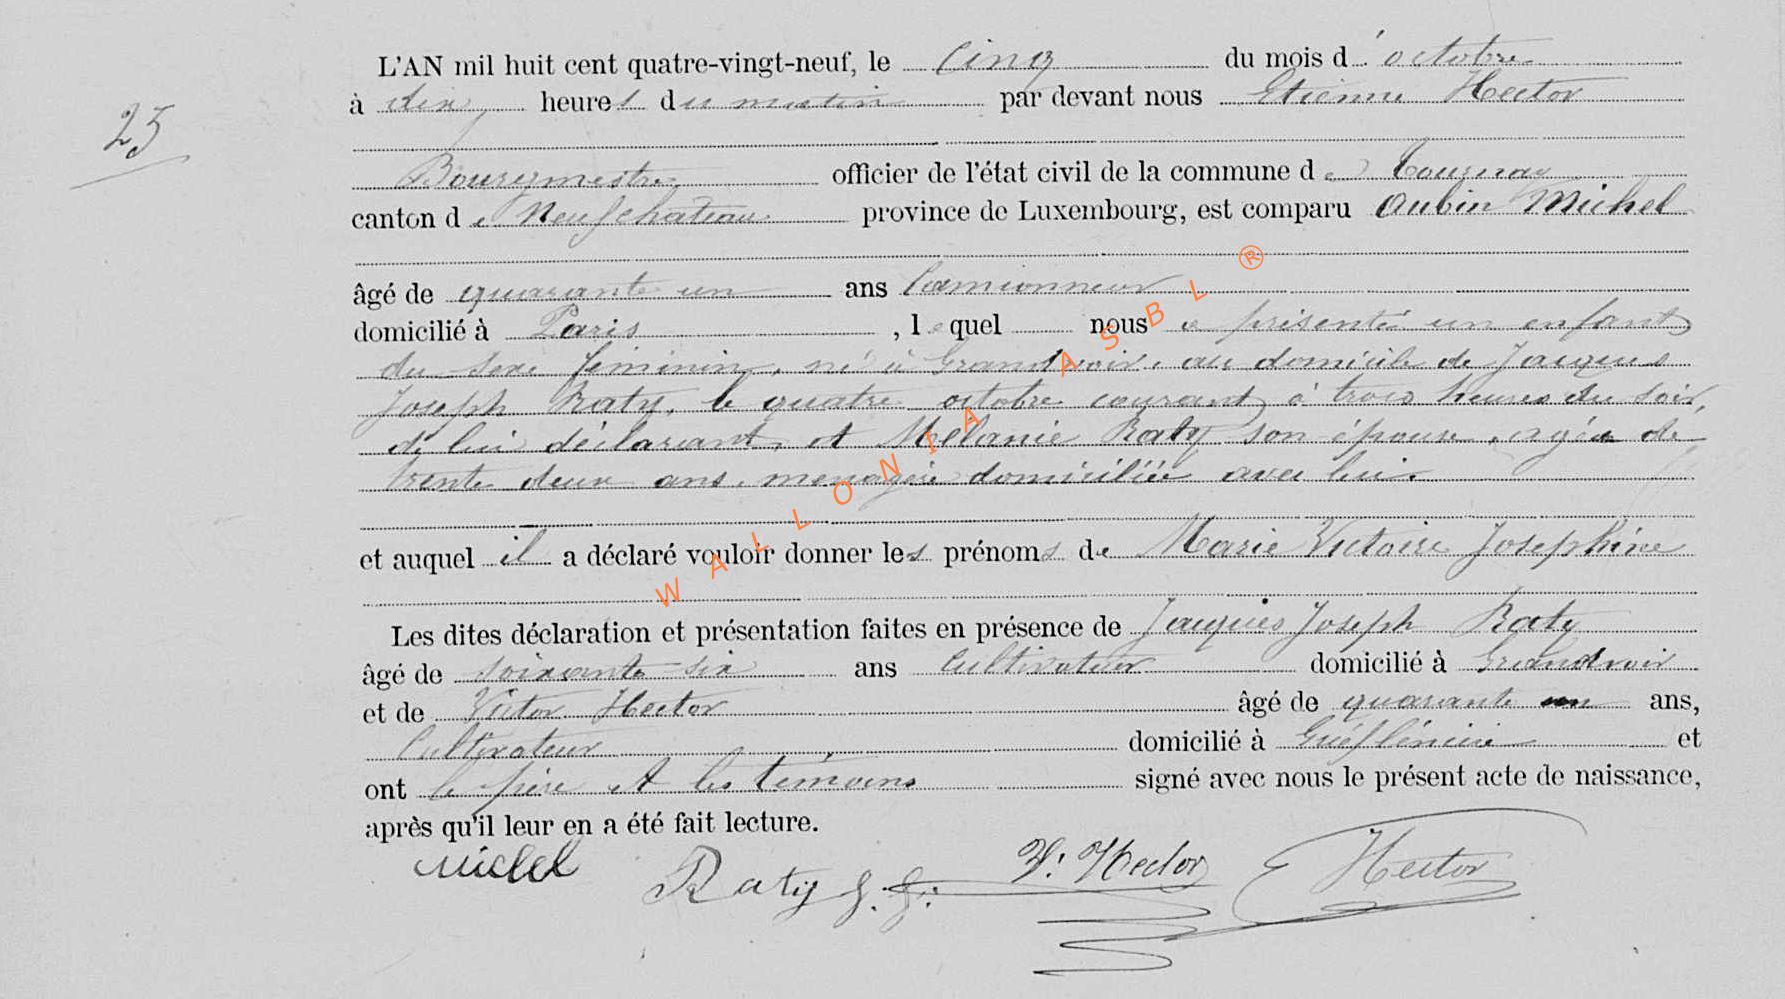 L'AN mil huit cent quatre-vingt-neuf, le Cinq du mois d'octobre
à dix heures du matin par devant nous Etienne Hector
25
Bourgmestre officier de l'état civil de la commune de Tournay
canton de Neufchateau province de Luxembourg, est comparu Aubin Michel
âgé de quarante un ans Camionneur
domicilié à Paris, lequel nous a présenté un enfant
du sexe féminin, né à Grandvoir, au domicile de Jacques
Joseph Raty, le quatre octobre courant à trois heures du soir,
de lui déclarant, et Mélanie Raty son épouse, agée de
trente deux ans, menagère domiciliée avec lui.
et auquel il a déclaré vouloir donner les prénoms de Marie Victoire Joséphine
Les dites déclaration et présentation faites en présence de Jacques Joseph Raty
âgé de soixante six ans Cultivateur domicilié à Grandvoir
et de Victor Hector âgé de quarante un ans,
Cultivateur domicilié à et
ont le père et les témoins signé avec nous le présent acte de naissance,
après qu'il leur en a été fait lecture.
Michel Raty J. J. V. Hector E Hector
WALLONIA ASBL ®